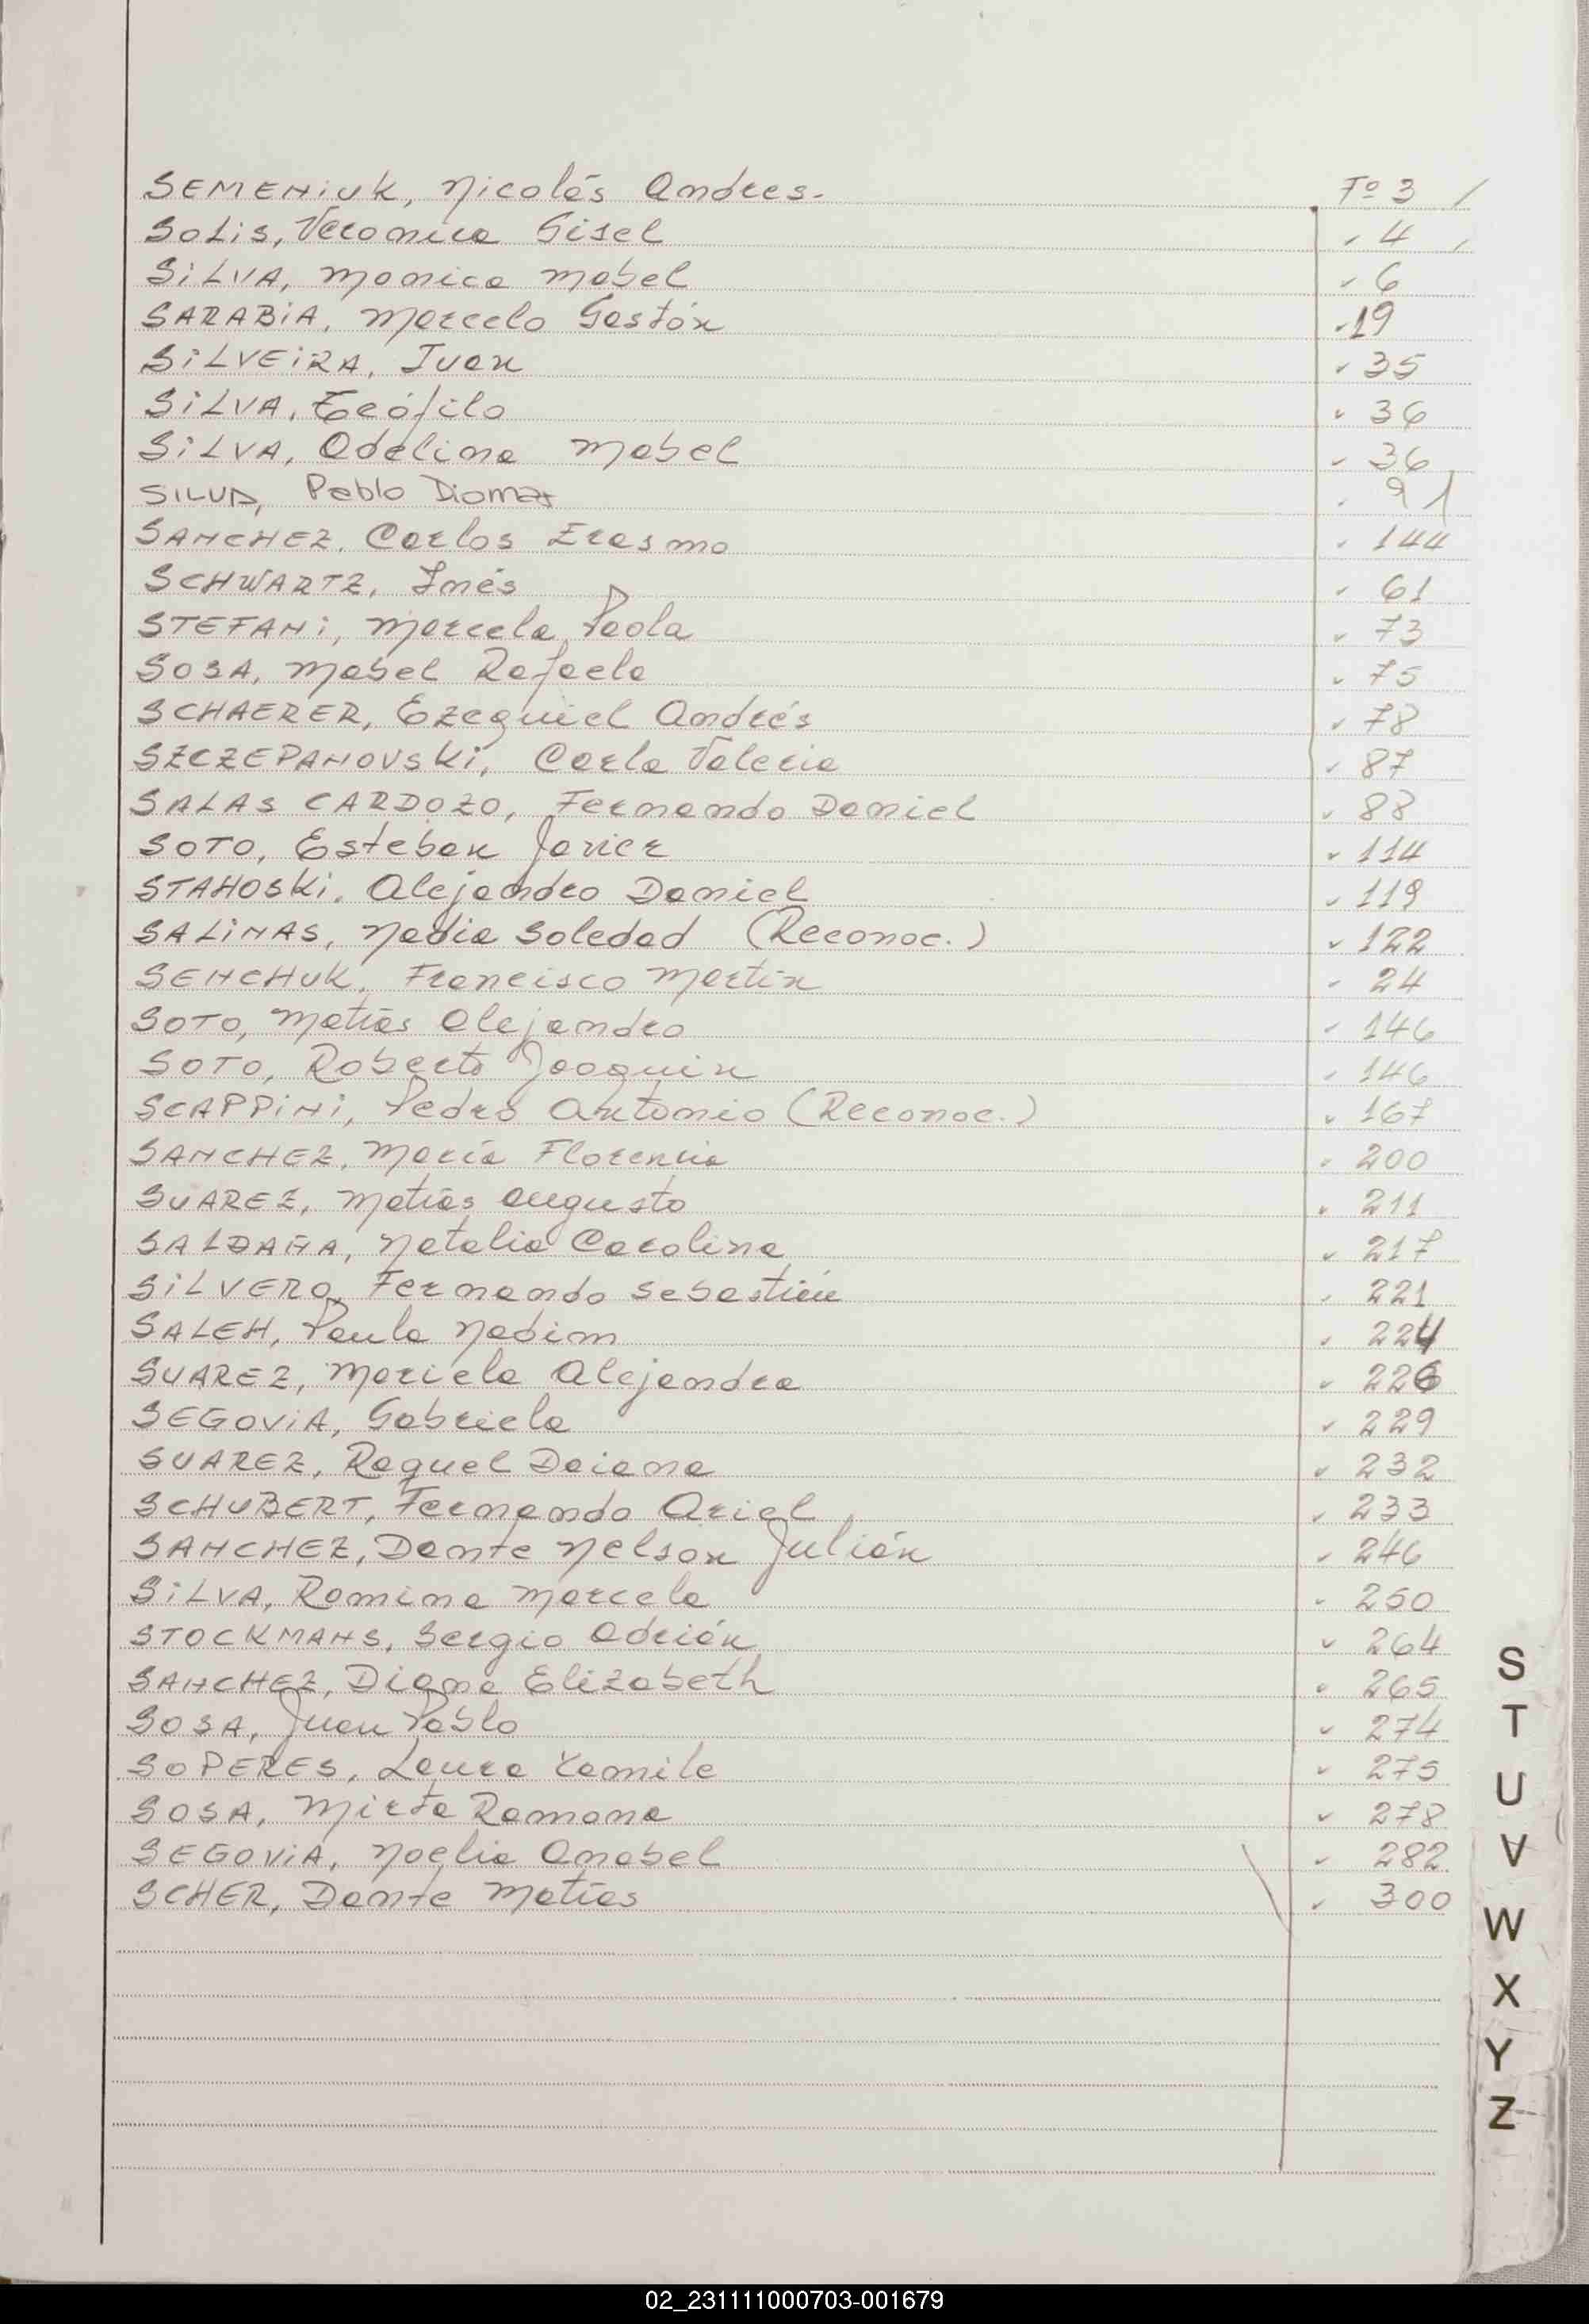 SEMENiUK, Nicolás Andres- Fº 3 /
SOLiS, Veronica Gisel " 4 /
SiLVA, Monica Mabel " 6
SARABiA, Marcelo Gastón " 19
SiLVEiRA, Juan " 35
SiLVA, Teófilo " 36
SiLVA, Adelina Mabel " 36
SILVA, Pablo Diomar " 91
SANCHEZ, Carlos Erasmo " 144
SCHWARTZ, Inés " 61
STEFANi, Marcela Paola " 73
SOSA, Mabel Rafaela " 75
SCHAERER, Ezequiel Andrés " 78
SZCZEPANOVSKi, Carla Valeria " 87
SALAS CARDOZO, Fernando Daniel " 88
SOTO, Esteban Javier " 114
STANOSKi, Alejandro Daniel " 119
SALiNAS, Nadia Soledad (Reconoc.) " 122
SENCHUK, Francisco Martín " 24
SOTO, Matías Alejandro " 146
SOTO, Roberto Joaquin " 146
SCAPPiNi, Pedro Antonio (Reconoc.) " 167
SANCHEZ, María Florencia " 200
SUAREZ, Matías Augusto " 211
SALDAÑA, Natalia Carolina " 217
SiLVERO, Fernando Sebastián " 221
SALEH, Paula Nadim " 224
SUAREZ, Mariela Alejandra " 226
SEGOViA, Gabriela " 229
SUAREZ, Raquel Daiana " 232
SCHUBERT, Fernando Ariel " 233
SANCHEZ, Dante Nelson Julián " 246
SiLVA, Romina Marcela " 250
STOCKMANS, Sergio Adrián " 264
SANCHEZ, Diana Elizabeth " 265
SOSA, Juan Pablo " 274
SOPERES, Laura Yamile " 275
SOSA, Mirta Ramona " 278
SEGOViA, Noelia Anabel " 282
SCHER, Dante Matías " 300
S
T
U
V
W
X
Y
Z
02_231111000703-001679